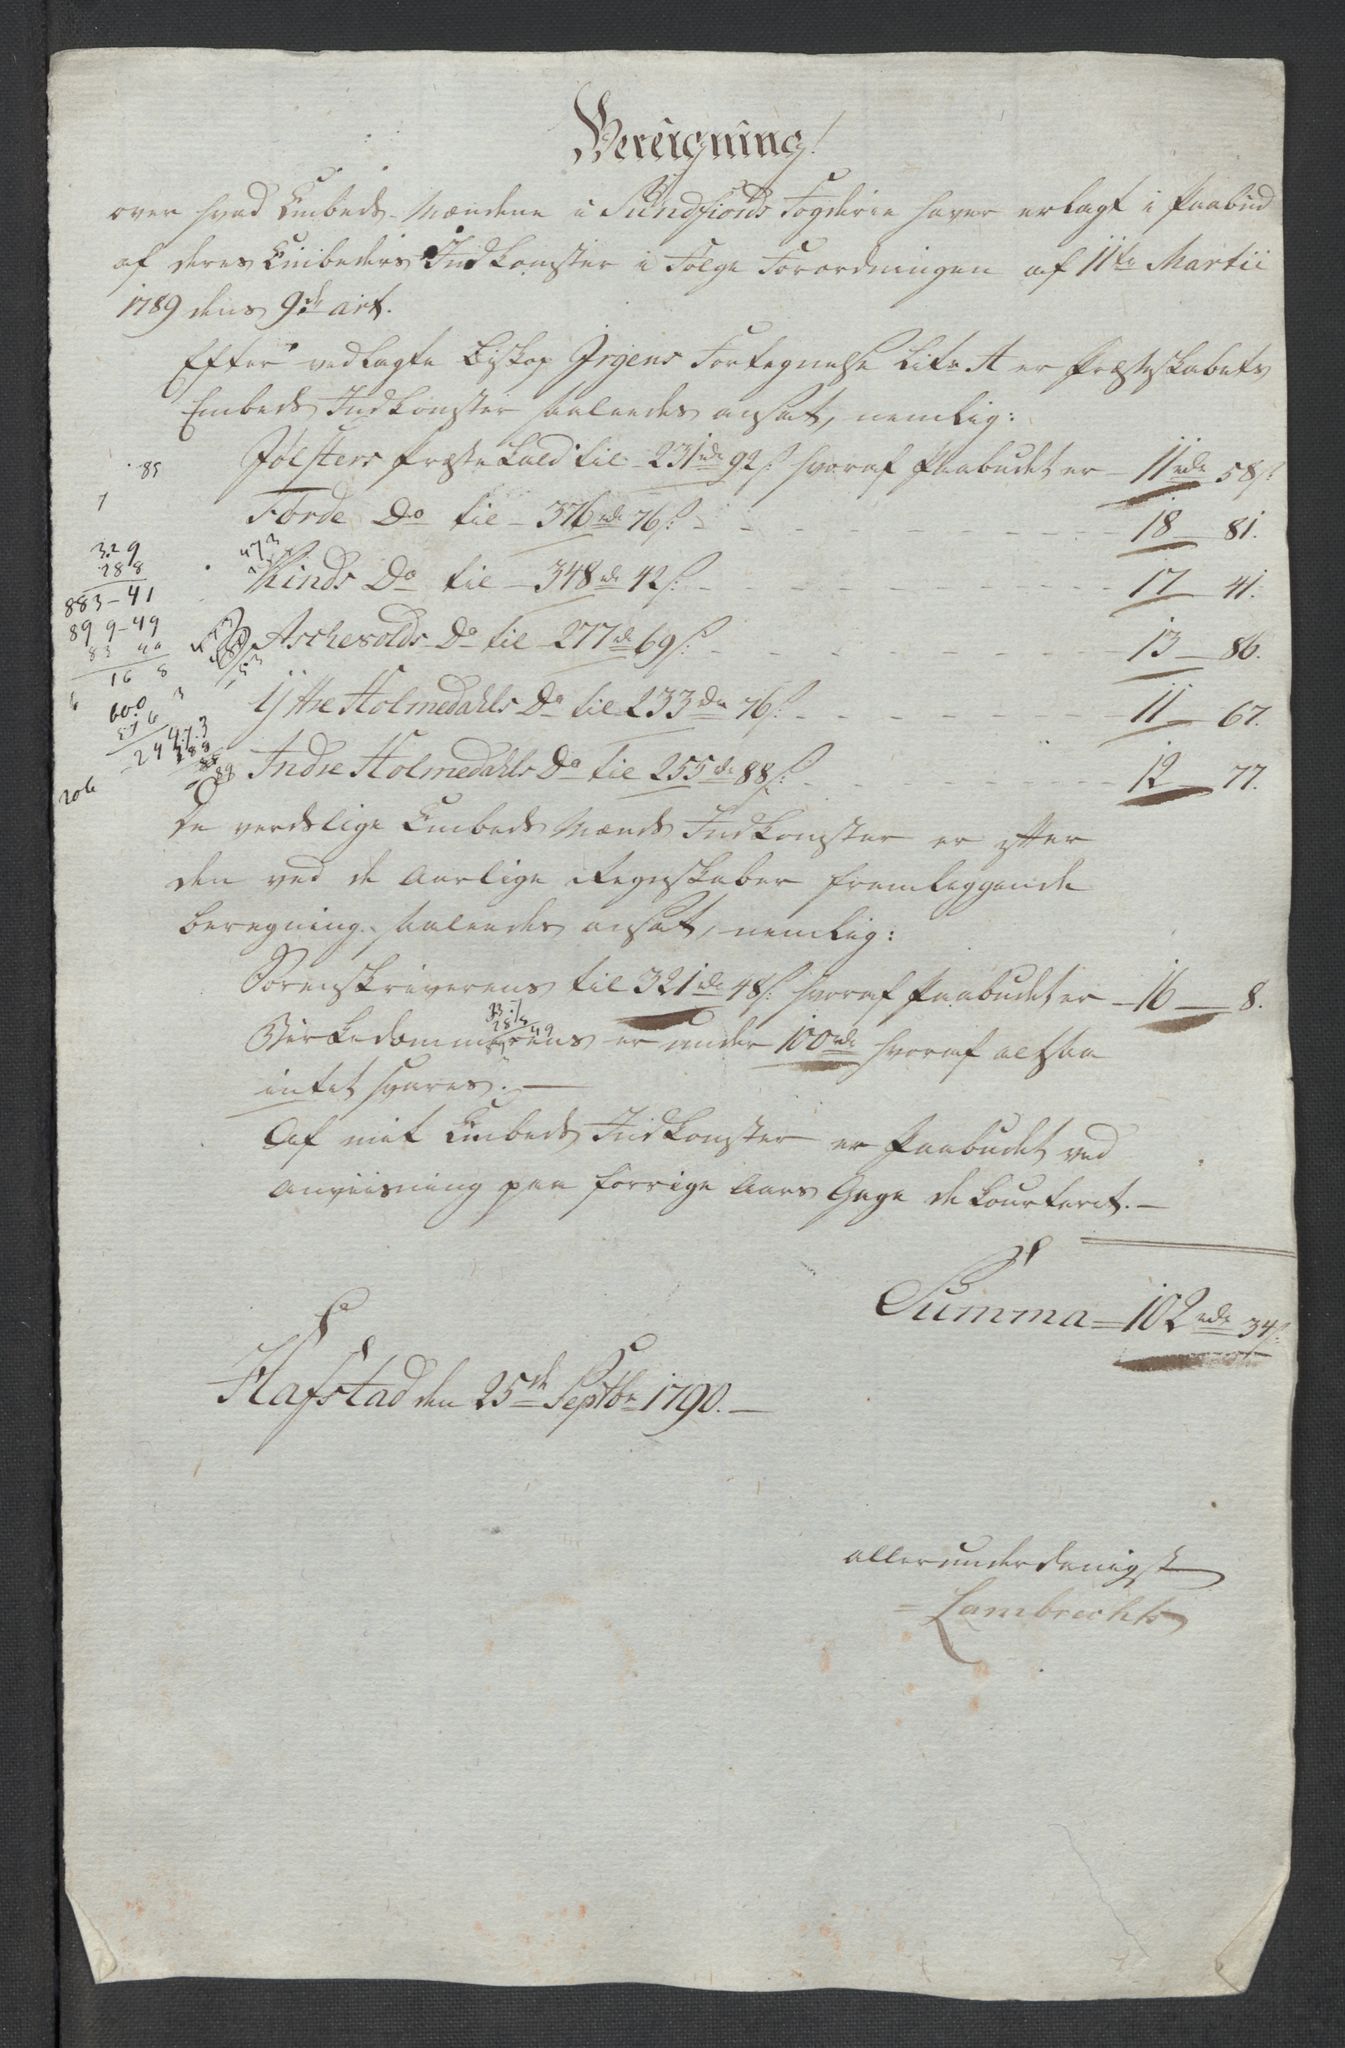 Bereigning
over hvad Embeds-Mændene i Sundfiords Fogderie haver erlagt i Paabud
af deres Embeders Indkomster i Følge Forordningen af 11te Martii
1789 dens 9de art.
Efter vedlagte Biskop Irgens Fortegnelse Litr A er Præsteskabets
Embeds Indkomster saaledes ansat, nemlig:
Jølsters Præstekald til 231 rd 92 s: hvoraf Paabudet er - 11 rd 58 s:
Førde Do til - 376 rd 76 s: - 18 - 81.
Kinds Do til - 348 rd 42 s: - 17 - 41.
Aschevolds Do til - 277 rd 69 s - 13 - 86.
Ijttre Holmedahls Do til 233 rd 76 s - 11 - 67.
Indre Holmedahls Do til 255 rd 88 s: - 12 - 77.
De verdslige Embeds Mænds Indkomster er efter
den ved de aarlige Regnskaber fremleggende
beregning saaledes ansat, nemlig:
Sorenskriverens til 321 rd 48 s: hvoraf Paabudet er - 16 - 8.
Birkedommerens er under 100 rd hvoraf altsaa
intet svares. -
Af mit Embeds Indkomster er Paabudet ved
anviisning paa forrige Aars Gage decourteret. -
Summa = 102 rd 34 s:
Hafstad den 25de Septbr 1790. -
allerunderdanigst
Lambrechts
85
1
329
288
883 - 41
899 - 49
16 8
600
206